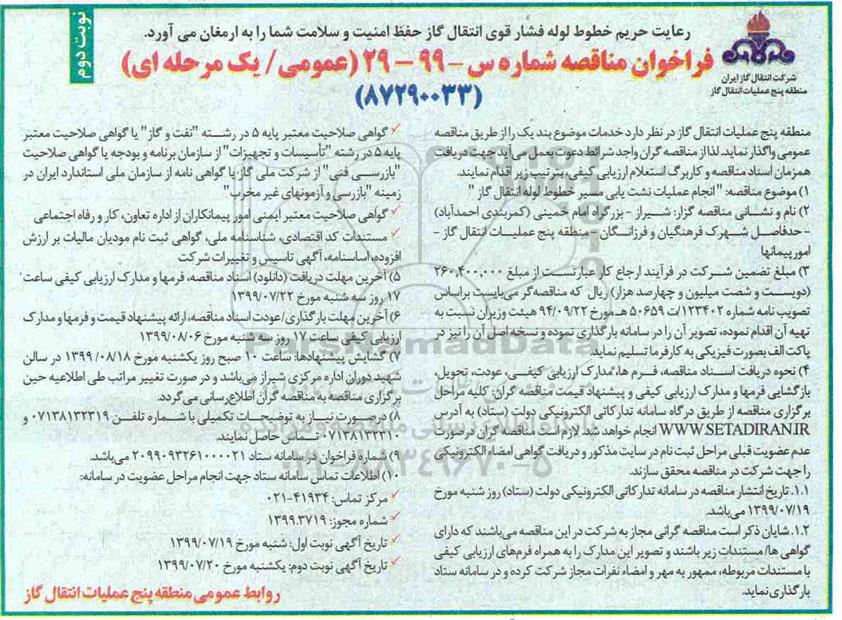 رعایت حریم خطوط لوله فشار قوی انتقال گاز حفظ امنیت و سلامت شما را به ارمغان می آورد.
نوبت دوم
شرکت انتقال گاز ایران
منطقه پنج عملیات انتقال گاز
فراخوان مناقصه شماره س - ۹۹ - ۲۹ (عمومی / یک مرحله ای)
(۸۷۲۹۰۰۳۳)
منطقه پنج عملیات انتقال گاز در نظر دارد خدمات موضوع بند یک را از طریق مناقصه
عمومی واگذار نماید. لذا از مناقصه گران واجد شرائط دعوت بعمل می آید جهت دریافت
همزمان اسناد مناقصه و کاربرگ استعلام ارزیابی کیفی، بترتیب زیر اقدام نمایند.
۱) موضوع مناقصه: "انجام عملیات نشت یابی مسیر خطوط لوله انتقال گاز "
۲) نام و نشانی مناقصه گزار: شیراز - بزرگراه امام خمینی (کمربندی احمدآباد)
- حدفاصل شهرک فرهنگیان و فرزانگان - منطقه پنج عملیات انتقال گاز -
امور پیمانها
۳) مبلغ تضمین شرکت در فرآیند ارجاع کار عبارتست از مبلغ ۲۶۰,۴۰۰,۰۰۰
(دویست و شصت میلیون و چهارصد هزار) ریال که مناقصه گر می بایست براساس
تصویب نامه شماره ۱۲۳۴۰۲/ت ۵۰۶۵۹ هـ مورخ ۹۴/۰۹/۲۲ هیئت وزیران نسبت به
تهیه آن اقدام نموده، تصویر آن را در سامانه بارگذاری نموده و نسخه اصل آن را نیز در
پاکت الف بصورت فیزیکی به کارفرما تسلیم نماید.
۴) نحوه دریافت اسناد مناقصه، فرم ها، مدارک ارزیابی کیفی، عودت، تحویل،
بازگشایی فرمها و مدارک ارزیابی کیفی و پیشنهاد قیمت مناقصه گران: کلیه مراحل
برگزاری مناقصه از طریق درگاه سامانه تدارکاتی الکترونیکی دولت (ستاد) به آدرس
WWW.SETADIRAN.IR انجام خواهد شد. لازم است مناقصه گران درصورت
عدم عضویت قبلی مراحل ثبت نام در سایت مذکور و دریافت گواهی امضاء الکترونیکی
را جهت شرکت در مناقصه محقق سازند.
۱.۱. تاریخ انتشار مناقصه در سامانه تدارکاتی الکترونیکی دولت (ستاد) روز شنبه مورخ
۱۳۹۹/۰۷/۱۹ می باشد.
۱.۲. شایان ذکر است مناقصه گرانی مجاز به شرکت در این مناقصه می باشند که دارای
گواهی ها/ مستندات زیر باشند و تصویر این مدارک را به همراه فرم های ارزیابی کیفی
با مستندات مربوطه، ممهور به مهر و امضاء نفرات مجاز شرکت کرده و در سامانه ستاد
بارگذاری نماید.
✓ گواهی صلاحیت معتبر پایه ۵ در رشته "نفت و گاز" یا گواهی صلاحیت معتبر
پایه ۵ در رشته "تأسیسات و تجهیزات" از سازمان برنامه و بودجه یا گواهی صلاحیت
"بازرسی فنی" از شرکت ملی گاز یا گواهی نامه از سازمان ملی استاندارد ایران در
زمینه "بازرسی و آزمونهای غیر مخرب"
✓ گواهی صلاحیت معتبر ایمنی امور پیمانکاران از اداره تعاون، کار و رفاه اجتماعی
✓ مستندات کد اقتصادی، شناسنامه ملی، گواهی ثبت نام مودیان مالیات بر ارزش
افزوده، اساسنامه، آگهی تاسیس و تغییرات شرکت
۵) آخرین مهلت دریافت (دانلود) اسناد مناقصه، فرمها و مدارک ارزیابی کیفی ساعت
۱۷ روز سه شنبه مورخ ۱۳۹۹/۰۷/۲۲
۶) آخرین مهلت بارگذاری/عودت اسناد مناقصه، ارائه پیشنهاد قیمت و فرمها و مدارک
ارزیابی کیفی ساعت ۱۷ روز سه شنبه مورخ ۱۳۹۹/۰۸/۰۶
۷) گشایش پیشنهادها: ساعت ۱۰ صبح روز یکشنبه مورخ ۱۳۹۹/۰۸/۱۸ در سالن
شهید دوران اداره مرکزی شیراز می باشد و در صورت تغییر مراتب طی اطلاعیه حین
برگزاری مناقصه به مناقصه گران اطلاع رسانی می گردد.
۸) در صورت نیاز به توضیحات تکمیلی با شماره تلفن ۰۷۱۳۸۱۳۲۳۱۹ و
۰۷۱۳۸۱۳۲۳۱۰ تماس حاصل نمایند.
۹) شماره فراخوان در سامانه ستاد ۲۰۹۹۰۹۳۲۶۱۰۰۰۰۲۱ می باشد.
۱۰) اطلاعات تماس سامانه ستاد جهت انجام مراحل عضویت در سامانه:
✓ مرکز تماس: ۴۱۹۳۴-۰۲۱
✓ شماره مجوز: ۱۳۹۹.۳۷۱۹
✓ تاریخ آگهی نوبت اول: شنبه مورخ ۱۳۹۹/۰۷/۱۹
✓ تاریخ آگهی نوبت دوم: یکشنبه مورخ ۱۳۹۹/۰۷/۲۰
روابط عمومی منطقه پنج عملیات انتقال گاز